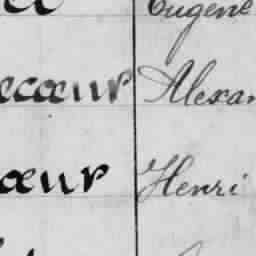 Eugène
ecœur Alexan
œur Henri